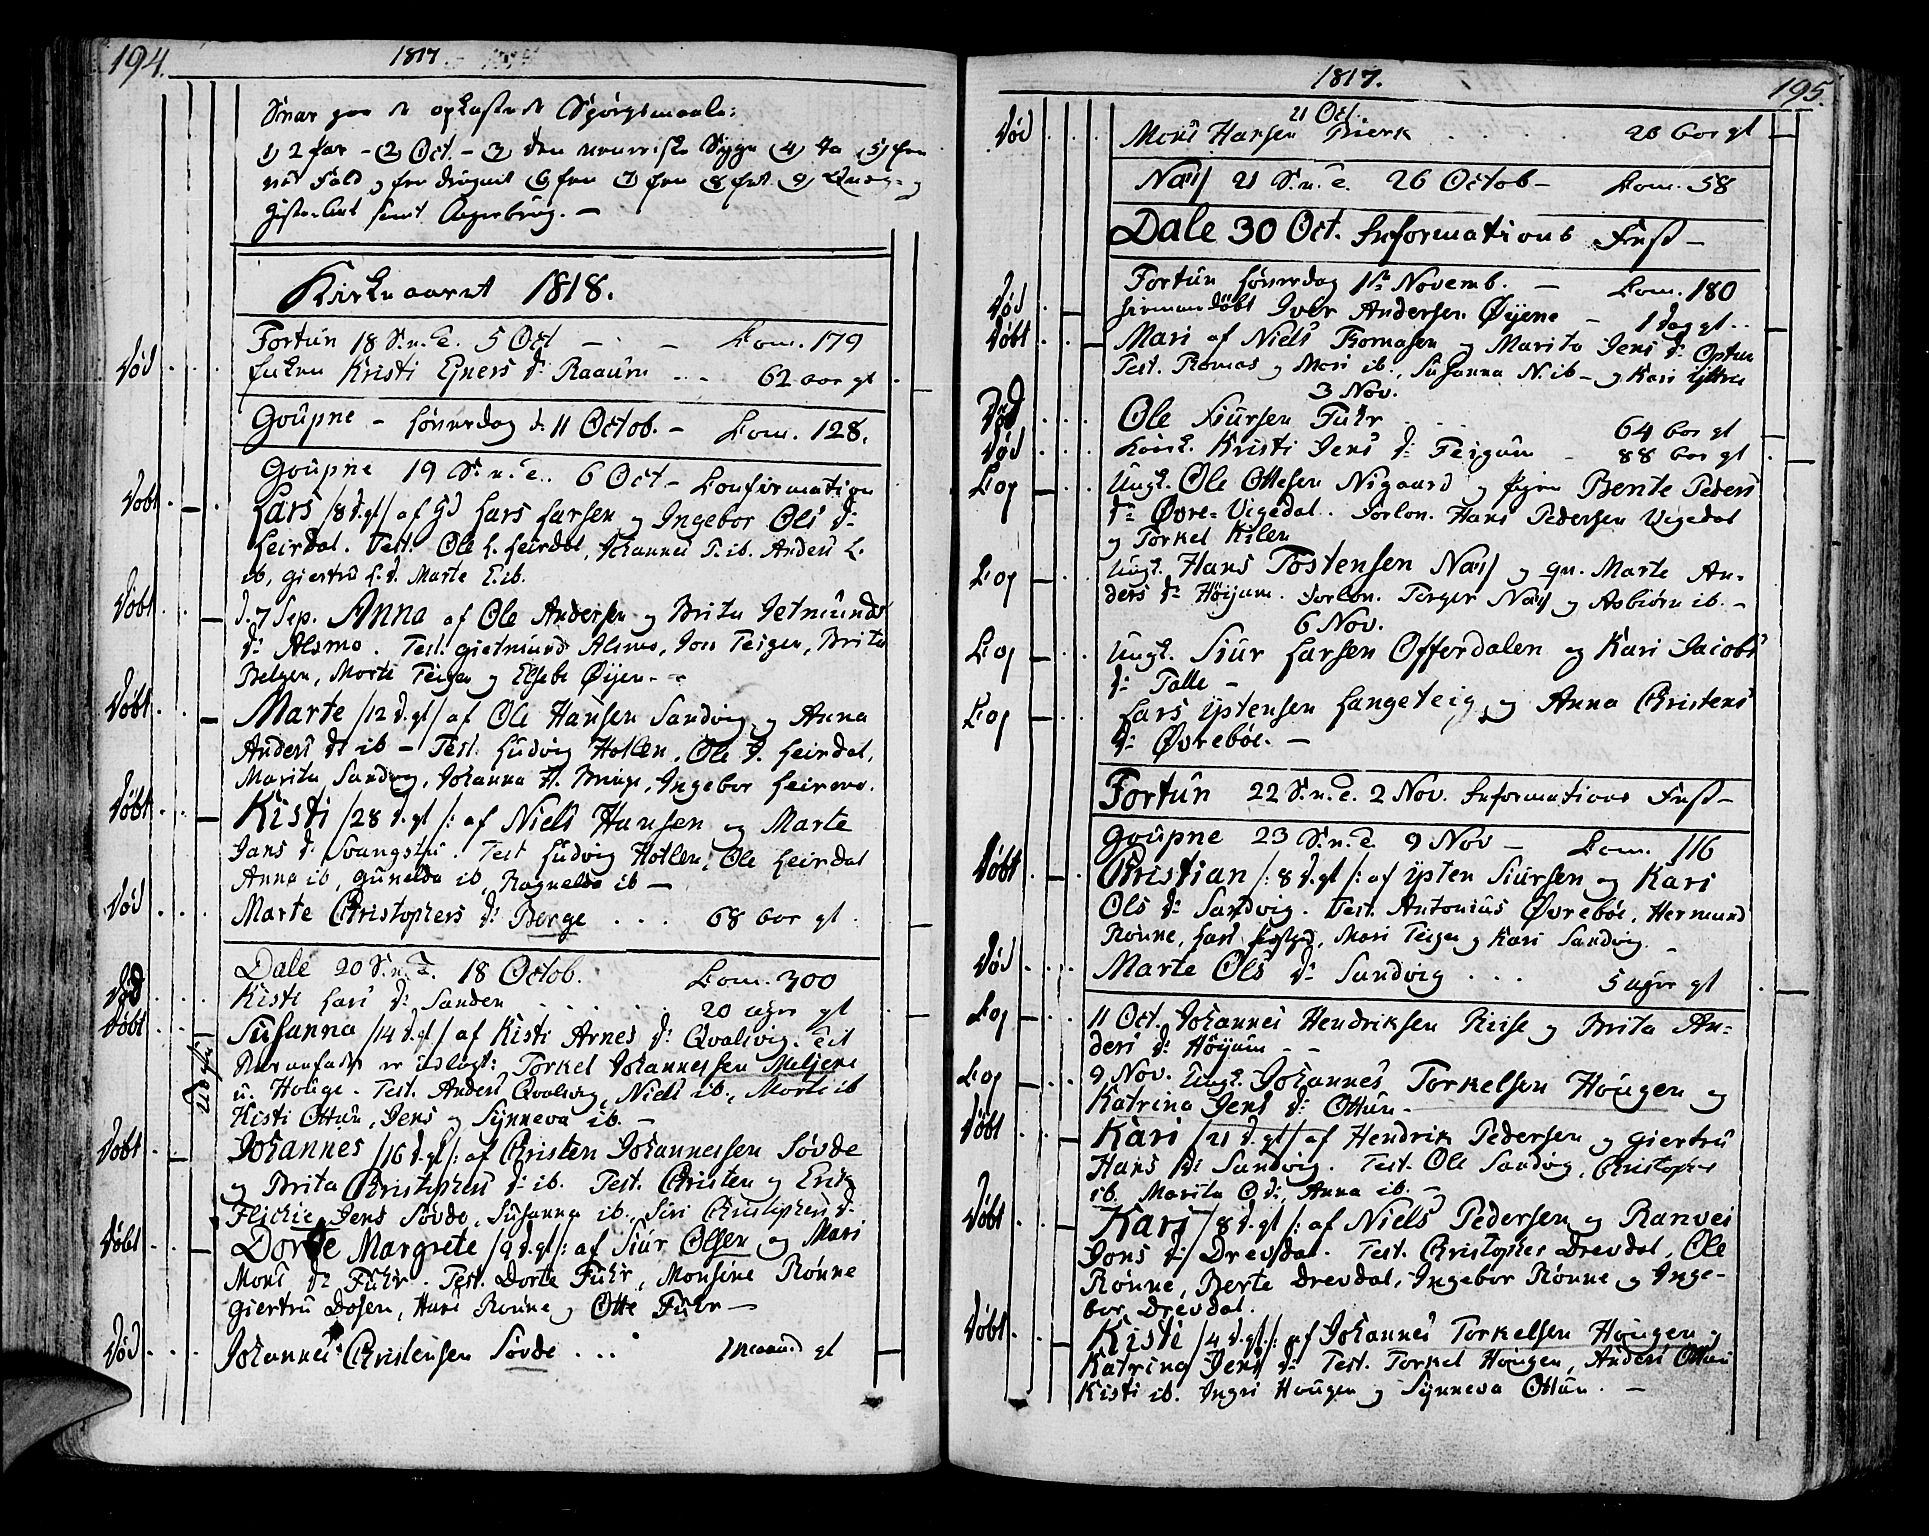 194.
1817.
Svar paa de opkastede Spørgsmaale:
1) 2 far - 2) Oct. - 3) den
4) Ja 5)
6) 7) 8) 9)
samt Aagerbrug. -
Kirkeaaret 1818.
Fortun 18 S. n. T. 5 Oct - Com. 179
Død Enken Kristi Ejners d: Raaum - - 62 aar gl
Goupne - Løverdag d. 11 Octob. - Com. 128.
Goupne 19 S. n. T. 6 Oct - Confirmation
Døbt Lars /8 d. gl/ af Lars Larsen og Ingebor Ols d:
Leirdal. Test. Ole L. Leirdal, Johannes T. ib. Anders L.
ib, Giertru L. d. Marte E. ib.
Døbt d. 7 Sep. Anna af Ole Andersen og Brita Jetmunds
d: Alsmo. Test. Gietmund Alsmo, Jon Teigen, Brita
Bolgen, Marte Teigen og Elsebe Øyen - -
Døbt Marte /12 d. gl/ af Ole Hansen Sandvig og Anna
Anders d: ib - Test. Ludvig Hotlen, Ole Leirdal,
Marita Sandvig, Johanna H. Bringe, Ingebor Leirmo.
Døbt Kisti /28 d. gl/: af Niels Hansen og Marte
Jans d: Svangstu. Test Ludvig Hotlen, Ole Leirdal
Anna ib, Gunelda ib, Ragnelda ib -
Død Marte Christophers d: Berge . . . 68 aar gl.
Dale 20 S. n. T. 18 Octob. Com. 300
Død Kisti Lars d: Sanden . . . . . 20 uger gl
Døbt Susanna /14 d. gl/ af Kisti Arnes d: Qvalsvig. Til
Barnefader er udlagt: Torkel Johannessen Meljene
u. Houge. Test. Anders Qvalsvig, Niels ib., Marte ib
Kisti Ottun, Jens og Synneva ib. -
Døbt Johannes /16 d. gl/: af Christen Johannessen Søvde
og Brita Christophers d: ib. Test. Christen og Erik
Flichie, Jens Søvde, Susanna ib. Siri Christophers d:
Døbt Dorte Margrete /9 d. gl/: af Siur Olsen og Mari
Mons d: Fuhr. Test. Dorte Fuhr, Monsine Rønne
Giertru Dosen, Hans Rønne og Otte Fuhr -
Død Johannes Christensen Søvde . . . 1 maaned gl
1817.
195.
21 Oct.
Død Mons Hansen Bierk . . . . 28 aar gl
Næs 21 S. n. T. 26 Octob - Com. 58
Dale 30 Oct. Informations Fest -
Fortun Løverdag 1ste Novemb. - Com. 180
Død hiemmedøbt Iver Andersen Øyene - 1 dag gl . .
Døbt Mari af Niels Thomasen og Marita Jens d: Optun
Test. Thomas og Mari ib., Susanna N. ib - og Kari Yttre
3 Nov.
Død Ole Siursen Fuhr . . . 64 aar gl
Død Kristi Jens d: Feigum - 88 aar gl
Cop Ungk. Ole Ottesen Nigaard og Pigen Bente Peders
d: Øvre-Vigedal. Forlov. Hans Pedersen Vigedal
og Torkel Kilen
Cop Ungk. Hans Tostensen Næs og qv. Marte An-
ders d: Høyum. Forlov. Torger Næs og Asbiørn ib. -
6 Nov.
Cop Ungk. Siur Larsen Offerdalen og Kari Jacobs
d: Talle -
Cop Lars Iptensen Langeteig og Anna Christens
d: Øvrebøe. -
Fortun 22 S. n. T. 2 Nov. Informations Fest -
Goupne 23 S. n. T. 9 Nov - Com. 116
Døbt Christian /: 8 d. gl/: af Ipten Siursen og Kari
Ols d: Sandvig. Test. Antonius Øvrebøe, Hermund
Rønne, Lars , Mari Teigen og Kari Sandvig.
Død Marte Ols d: Sandvig . . . 5 uger gl
Cop 11 Oct. Johannes Hendriksen og Brita An-
ders d: Høyum - -
Cop 9 Nov. Ungk. Johannes Torkelsen Hougen og
Katrina Jens d: Ottun -
Døbt Kari /21 d. gl/ af Hendrik Pedersen og Giertru
Hans d: Sandvig. Test. Ole Sandvig, Christopher
ib. Marita O d:, Anna ib. -
Døbt Kari /8 d. gl/: af Niels Pedersen og Ranvei
Jons d: Drevdal. Test. Christopher Drevdal, Ole
Rønne, Berte Drevdal, Ingebor Rønne og Inge-
bor Drevdal.
Døbt Kisti /4 d. gl/: af Johannes Torkelsen Hougen og
Katrina Jens d: Test. Torkel Hougen, Anders Ottun
Kisti ib. Ingri Hougen og Synneva Ottun. -